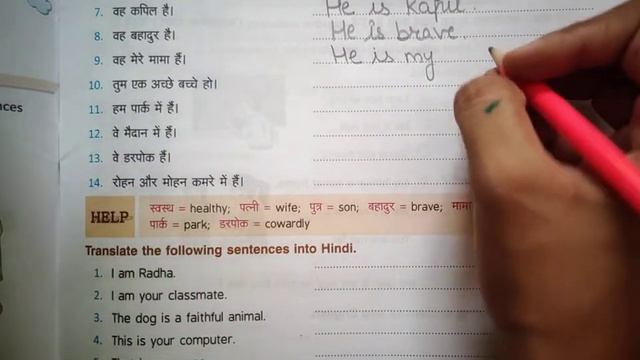 7. वह कपिल है। He is Kapil.
8. वह बहादुर है। He is brave.
9. वह मेरे मामा हैं। He is my
10. तुम एक अच्छे बच्चे हो।
11. हम पार्क में हैं।
ces
12. वे मैदान में हैं।
13. वे डरपोक हैं।
14. रोहन और मोहन कमरे में हैं।
HELP स्वस्थ = healthy; पत्नी = wife; पुत्र = son; बहादुर = brave; मामा
पार्क = park; डरपोक = cowardly
Translate the following sentences into Hindi.
1. I am Radha.
2. I am your classmate.
3. The dog is a faithful animal.
4. This is your computer.